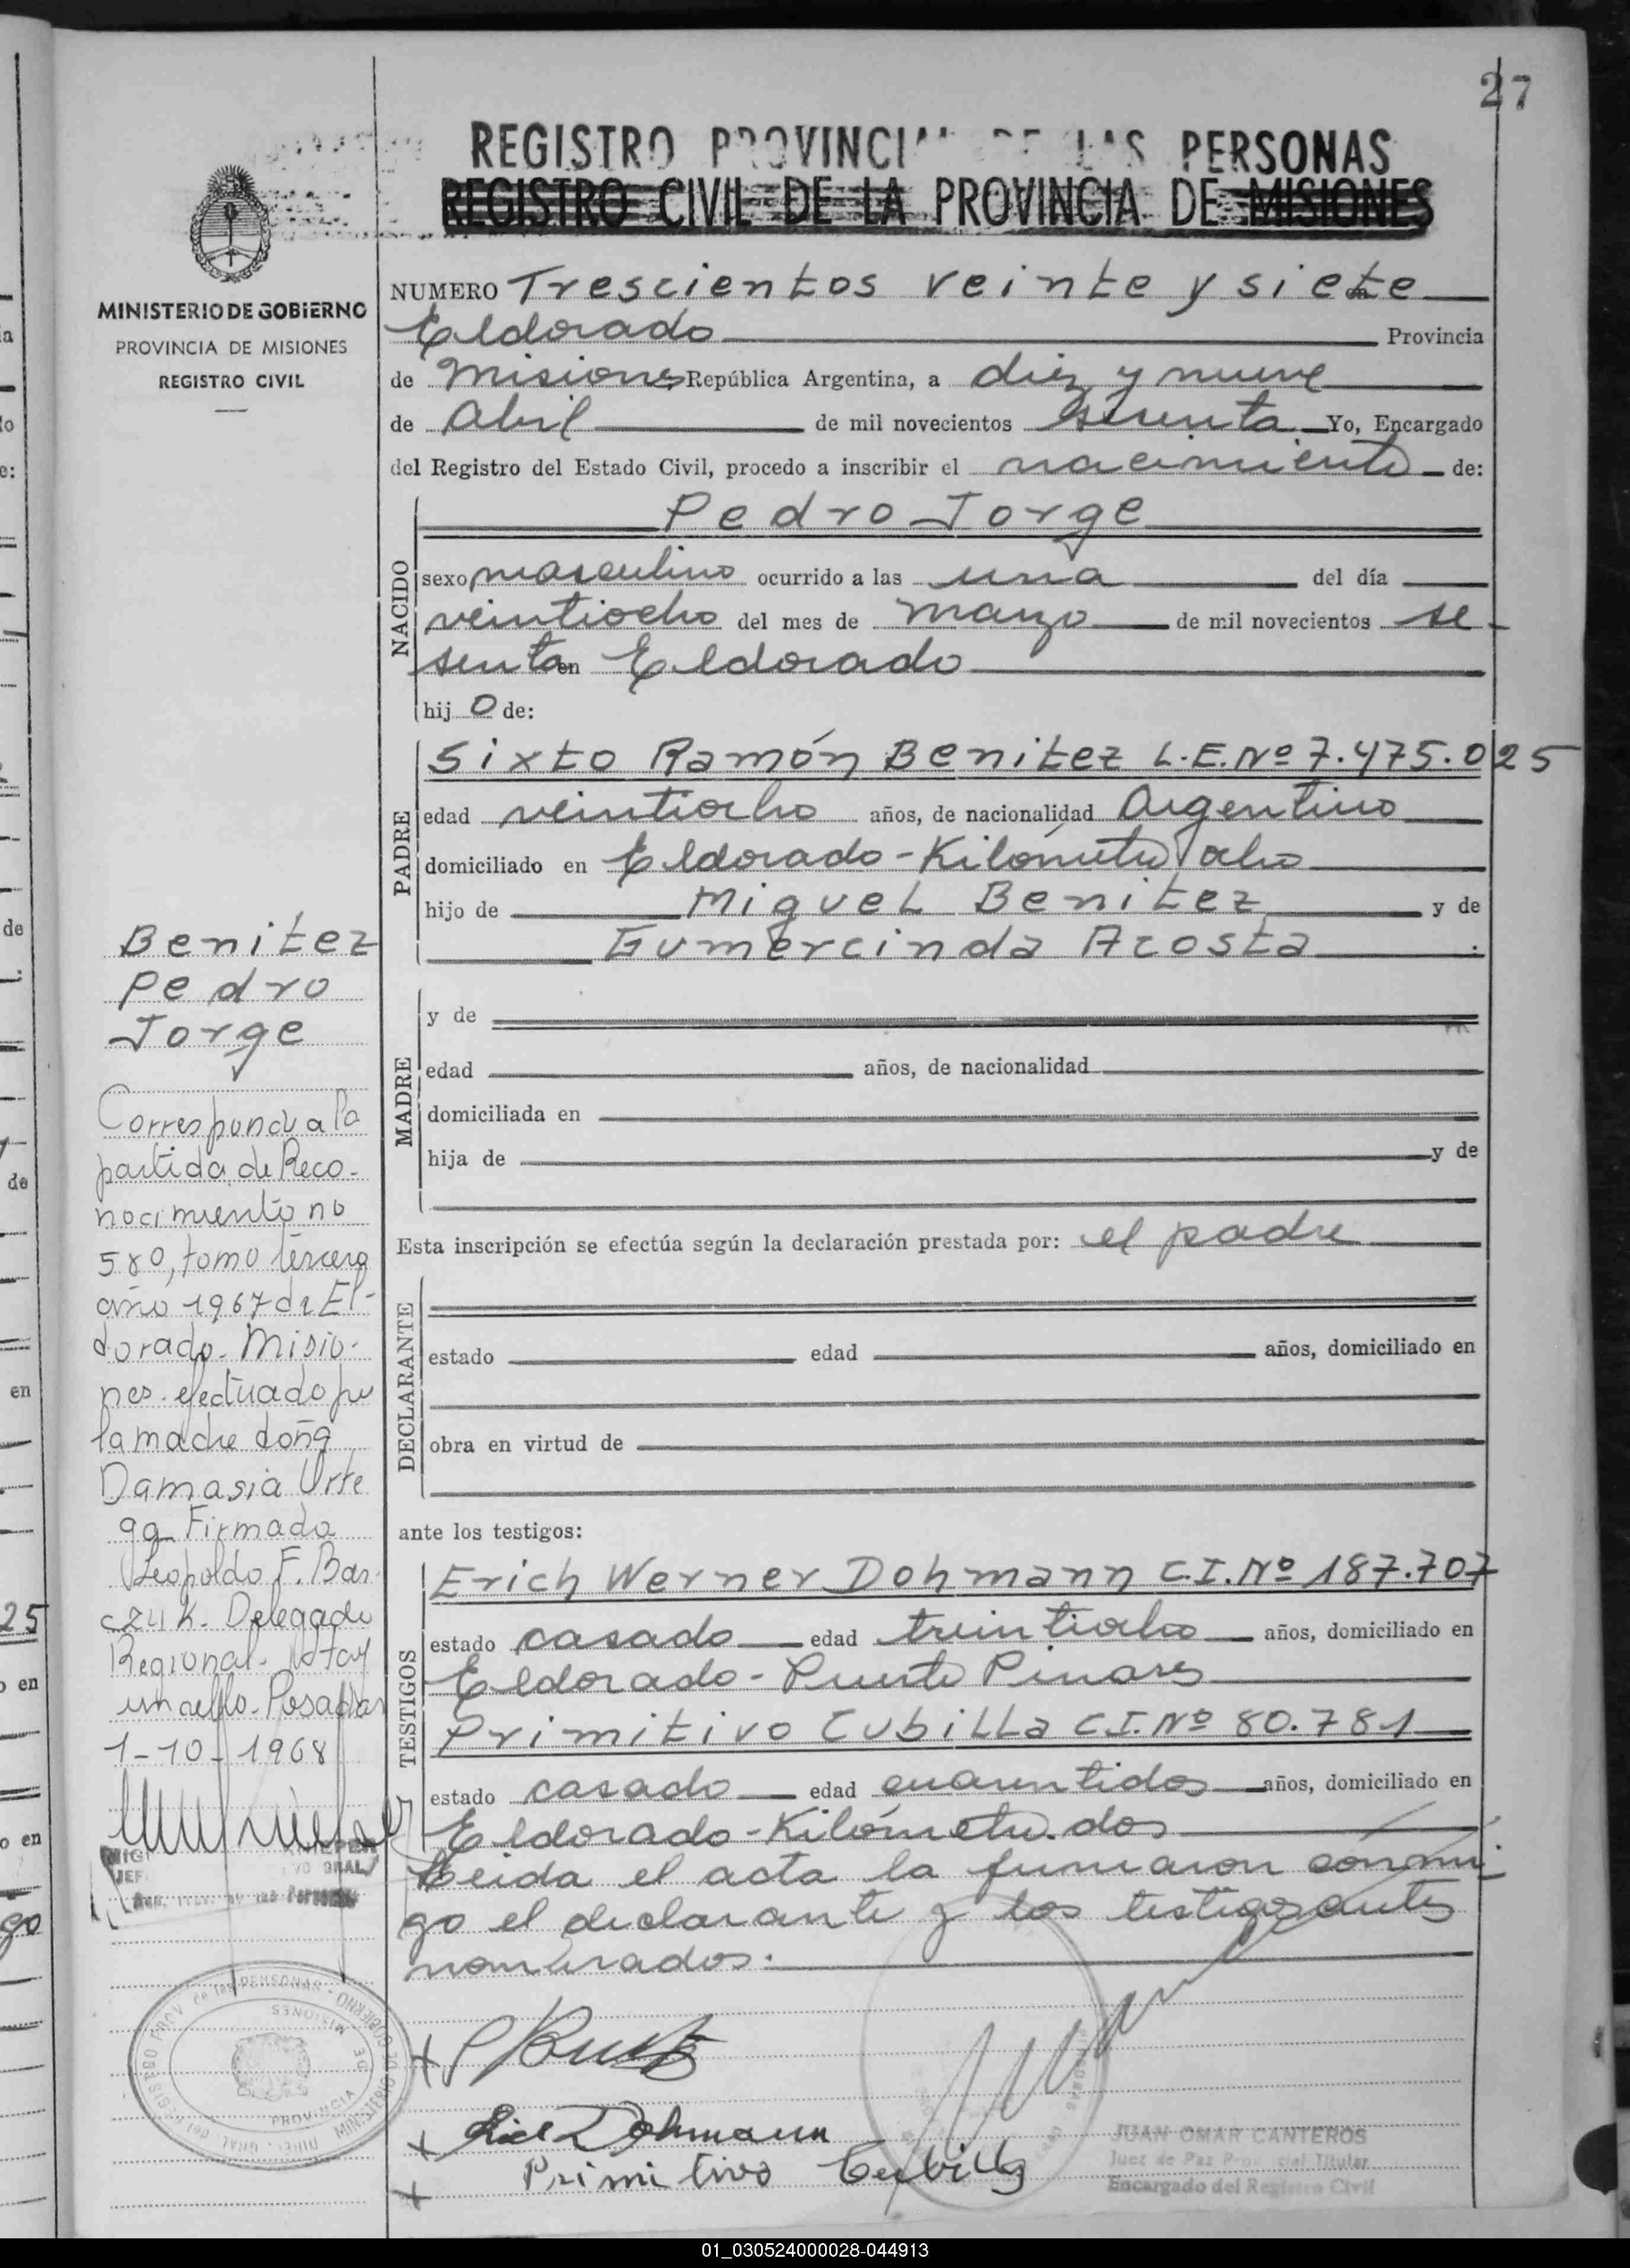 27
REGISTRO PROVINCIAL DE LAS PERSONAS
REGISTRO CIVIL DE LA PROVINCIA DE MISIONES
MINISTERIO DE GOBIERNO
PROVINCIA DE MISIONES
REGISTRO CIVIL
NUMERO Trescientos veinte y siete en
Eldorado Provincia
de Misiones República Argentina, a diez y nueve
de Abril de mil novecientos sesenta Yo, Encargado
del Registro del Estado Civil, procedo a inscribir el nacimiento de:
NACIDO
Pedro Jorge
sexo masculino ocurrido a las una del día
veintiocho del mes de marzo de mil novecientos se-
senta en Eldorado
hij o de:
PADRE
Sixto Ramón Benitez L.E.Nº 7.475.025
edad veintiocho años, de nacionalidad Argentino
domiciliado en Eldorado-Kilómetro ocho
hijo de Miguel Benitez y de
Gumercinda Acosta
MADRE
y de
edad años, de nacionalidad
domiciliada en
hija de y de
Esta inscripción se efectúa según la declaración prestada por: el padre
DECLARANTE
estado edad años, domiciliado en
obra en virtud de
ante los testigos:
TESTIGOS
Erich Werner Dohmann C.I.Nº 187.707
estado casado edad treintiocho años, domiciliado en
Eldorado-Puerto Pinares
Primitivo Cubilla C.I.Nº 80.781
estado casado edad cuarentidos años, domiciliado en
Eldorado-Kilómetro dos
Leida el acta la firmaron conmi-
go el declarante y los testigos antes
nombrados.
Dohmann
Primitivo Cubilla
JUAN OMAR CANTEROS
Juez de Paz Titular
Encargado del Registro Civil
Benitez
Pedro
Jorge
Corresponde a la
partida de Reco-
nocimiento no
580, tomo tercero
año 1967 de El-
dorado-Misio-
nes efectuado por
la madre doña
Damasia Urte
ga Firmado
Leopoldo F. Bar
czuk. Delegado
Regional. Hay
un sello-Posadas
1-10-1968
01_030524000028-044913